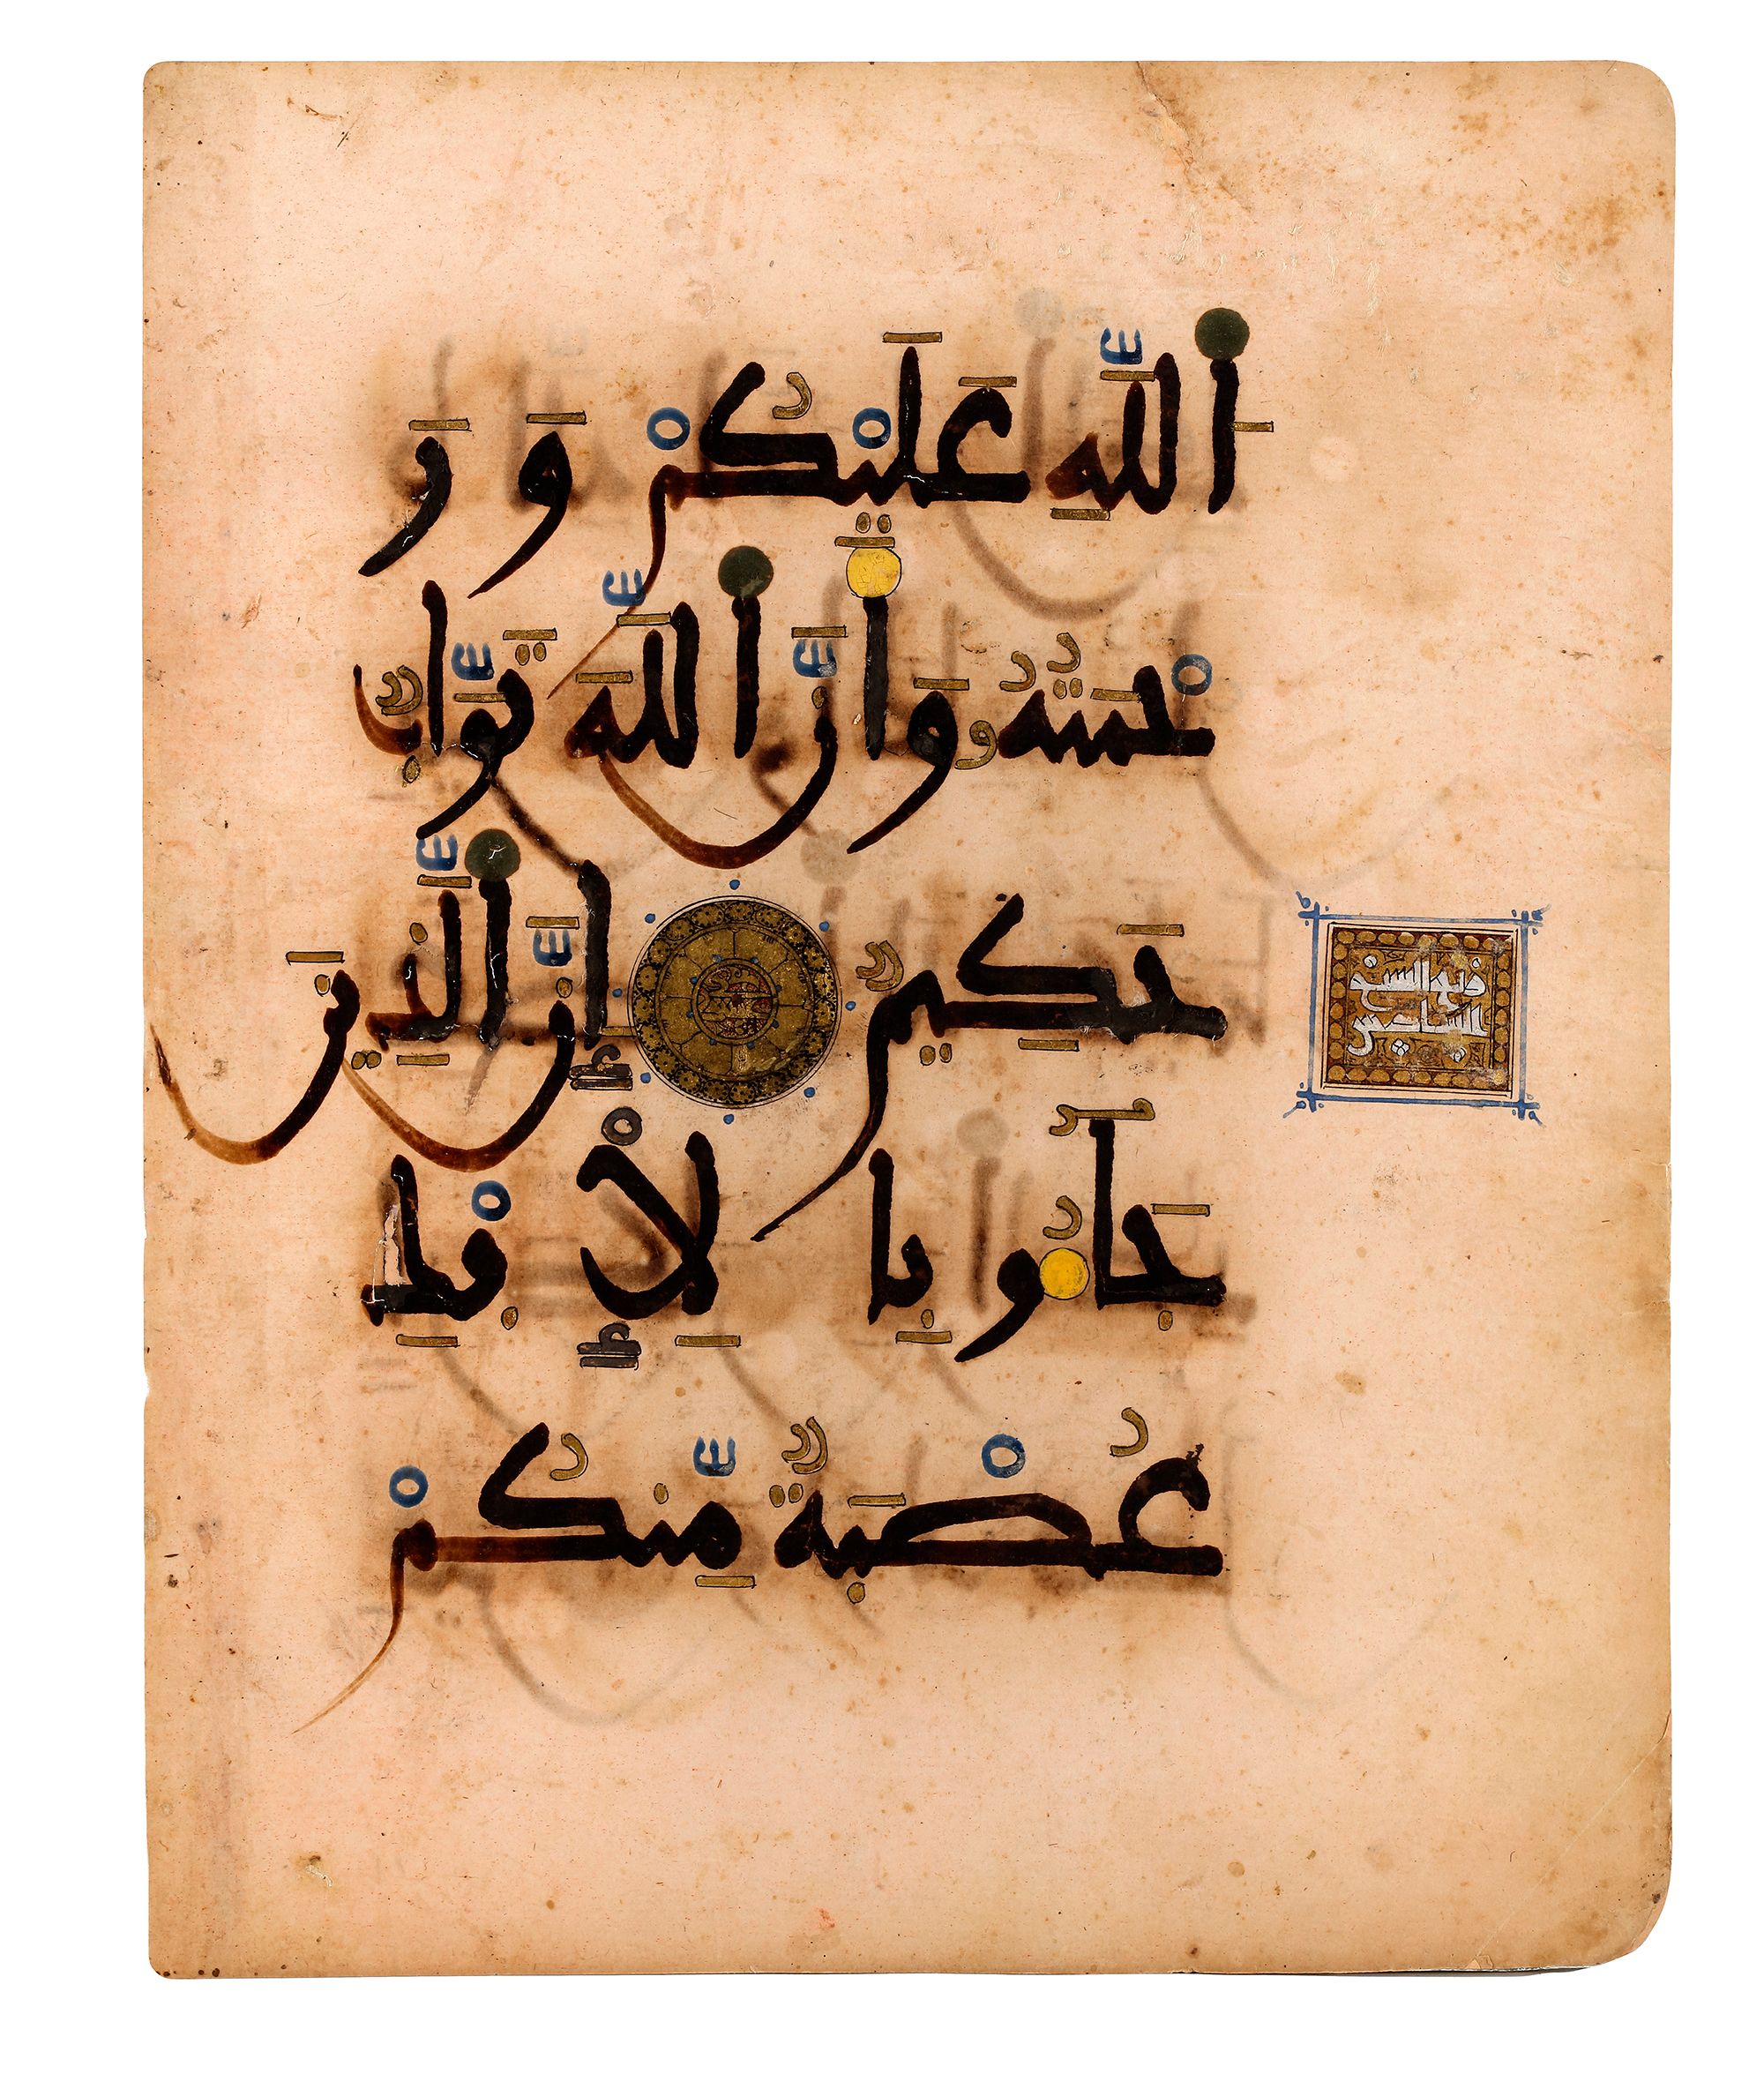 اللَّهِ عَلَيْكُمْ وَرَ
حْمَتُهُ وَأَنَّ اللَّهَ تَوَّابٌ
حَكِيمٌ إِنَّ الَّذِينَ
جَآءُو بِالْإِفْكِ
عُصْبَةٌ مِّنكُمْ